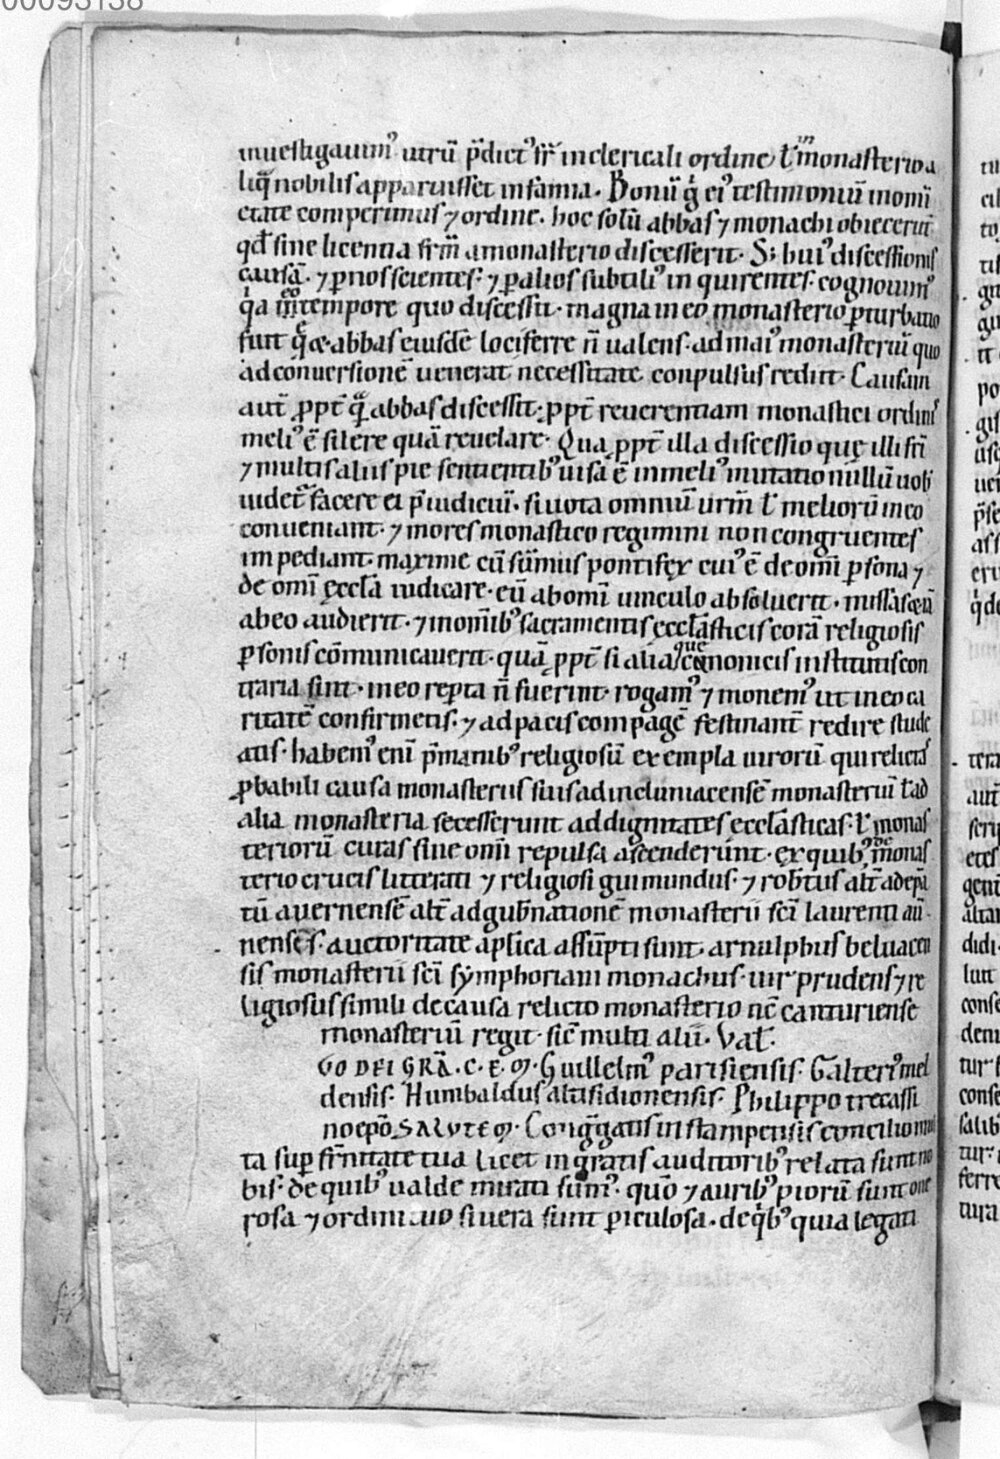 00093138
inuestigauim᷒ utrū p̄dict᷒ fr̄ in clericali ordine ł in monasterio a
liq̄ nobilis apparuisset infamia. Bonū g̊ ei᷒ testimoniū in omī
etate comperimus ⁊ ordine. hoc solū abbas ⁊ monachi obiecerūt
qd̄ sine licentia frm̄ a monasterio discesserit. S; hui᷒ discessionis
causā. ⁊ ꝑ nos scientes. ⁊ ꝑ alios subtili᷒ inquirentes. cognouim᷒
q̇a eo tempore quo discessit. magna in eo monasterio ꝑturbatio
fuit q̄ abbas eiusdē loci ferre n̄ ualens. ad mai᷒ monasteriū quo
ad conuersionē uenerat necessitate conpulsus rediit. Causam
aut̄ ꝓpt̄ q̄ abbas discessit. ꝓpt̄ reuerentiam monastici ordinis
meli᷒ ē silere quā reuelare. Qua ꝓpt̄ illa discessio quę illi frī
⁊ multis aliis pie sentientib᷒ uisa ē in meli᷒ mutatio nullū uob᷒
uidet̄ facere ei p̄iudiciū. si uota omniū urm̄ ł meliorū in eo
conueniant. ⁊ mores monastico regimini non congruentes
impediant. maxime cū sūmus pontifex cui᷒ ē de omī ꝑsona ⁊
de omī ęccl̄a iudicare. eū ab omī uinculo absoluerit. missas etiā
ab eo audierit. ⁊ in omib᷒ sacramentis ęccl̄asticis corā religiosis
ꝑsonis cōmunicauerit. quā ꝓpt̄ si alia que canonicis institutis con
traria sint. in eo reꝑta n̄ fuerint. rogam᷒ ⁊ monem᷒ ut in eo ca
ritatē confirmetis. ⁊ ad pacis compagē festinant̄ redire stude
atis. habem᷒ enī p̄ manib᷒ religiosū exempla uirorū qui relictis
ꝓbabili causa monasteriis suis ad incluniacensē monasteriū ł ad
alia monasteria secesserunt ad dignitates ecclāsticas. ł monas
teriorū curas sine omī repulsa ascenderunt. ex quib᷒ de monas
terio crucis litterati ⁊ religiosi guimundus. ⁊ rob̄tus alt̄ ad ep̄a
tū auernensē alt̄ ad gub̄nationē monasterii sc̄i laurentii aū
nensēs. auctoritate apl̄ica assūpti sunt. arnulphus beluacen
sis monasterii sc̄i symphoriani monachus. uir prudens ⁊ re
ligiosus simili de causa relicto monasterio nc̄ canturiense
monasteriū regit. sic̄ multi alii. Val̄.
GO DEI GRĀ. C. E. M. Guillelm᷒ parisiensis. Galteri᷒ mel
densis. Humbaldus altisidionensis. Philippo trecassi
no ep̄o SALVTEM. Congḡatis in stampensis concilio mul
ta suꝑ frn̄itate tua licet ingratis auditorib᷒ relata sunt no
bis. de quib᷒ ualde mirati sum᷒. quō ⁊ aurib᷒ piorū sunt one
rosa ⁊ ordini tuo si uera sunt ꝑiculosa. de q̇b᷒ quia legati